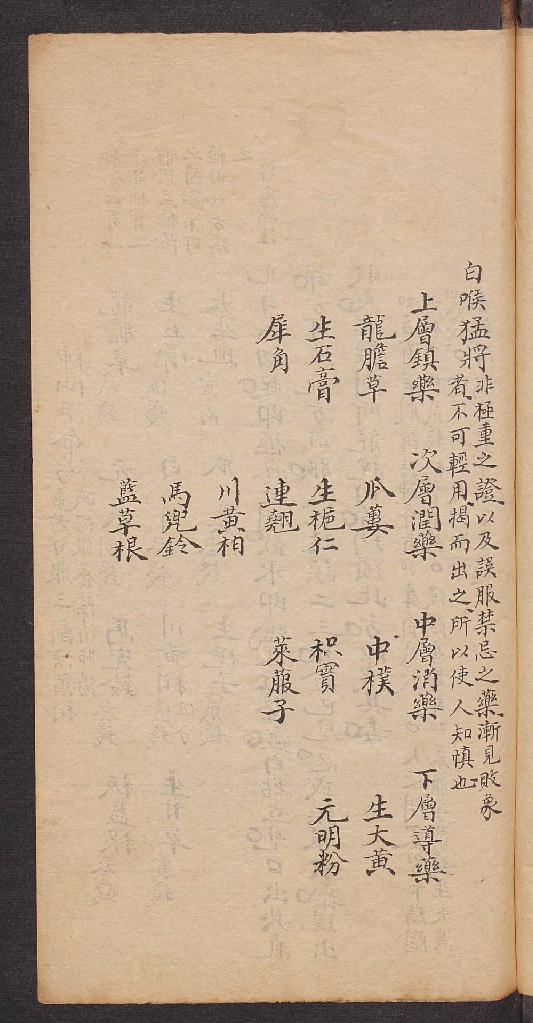 白喉猛將非極重之證以及誤服禁忌之藥漸見敗象
者不可輕用揭而出之所以使人知慎也
上層鎮藥 次層潤藥 中層消藥 下層導藥
龍膽草 瓜蔞 中樸 生大黃
生石膏 生梔仁 枳實 元明粉
犀角 連翹 萊服子
川黃柏
馬兜鈴
藍草根